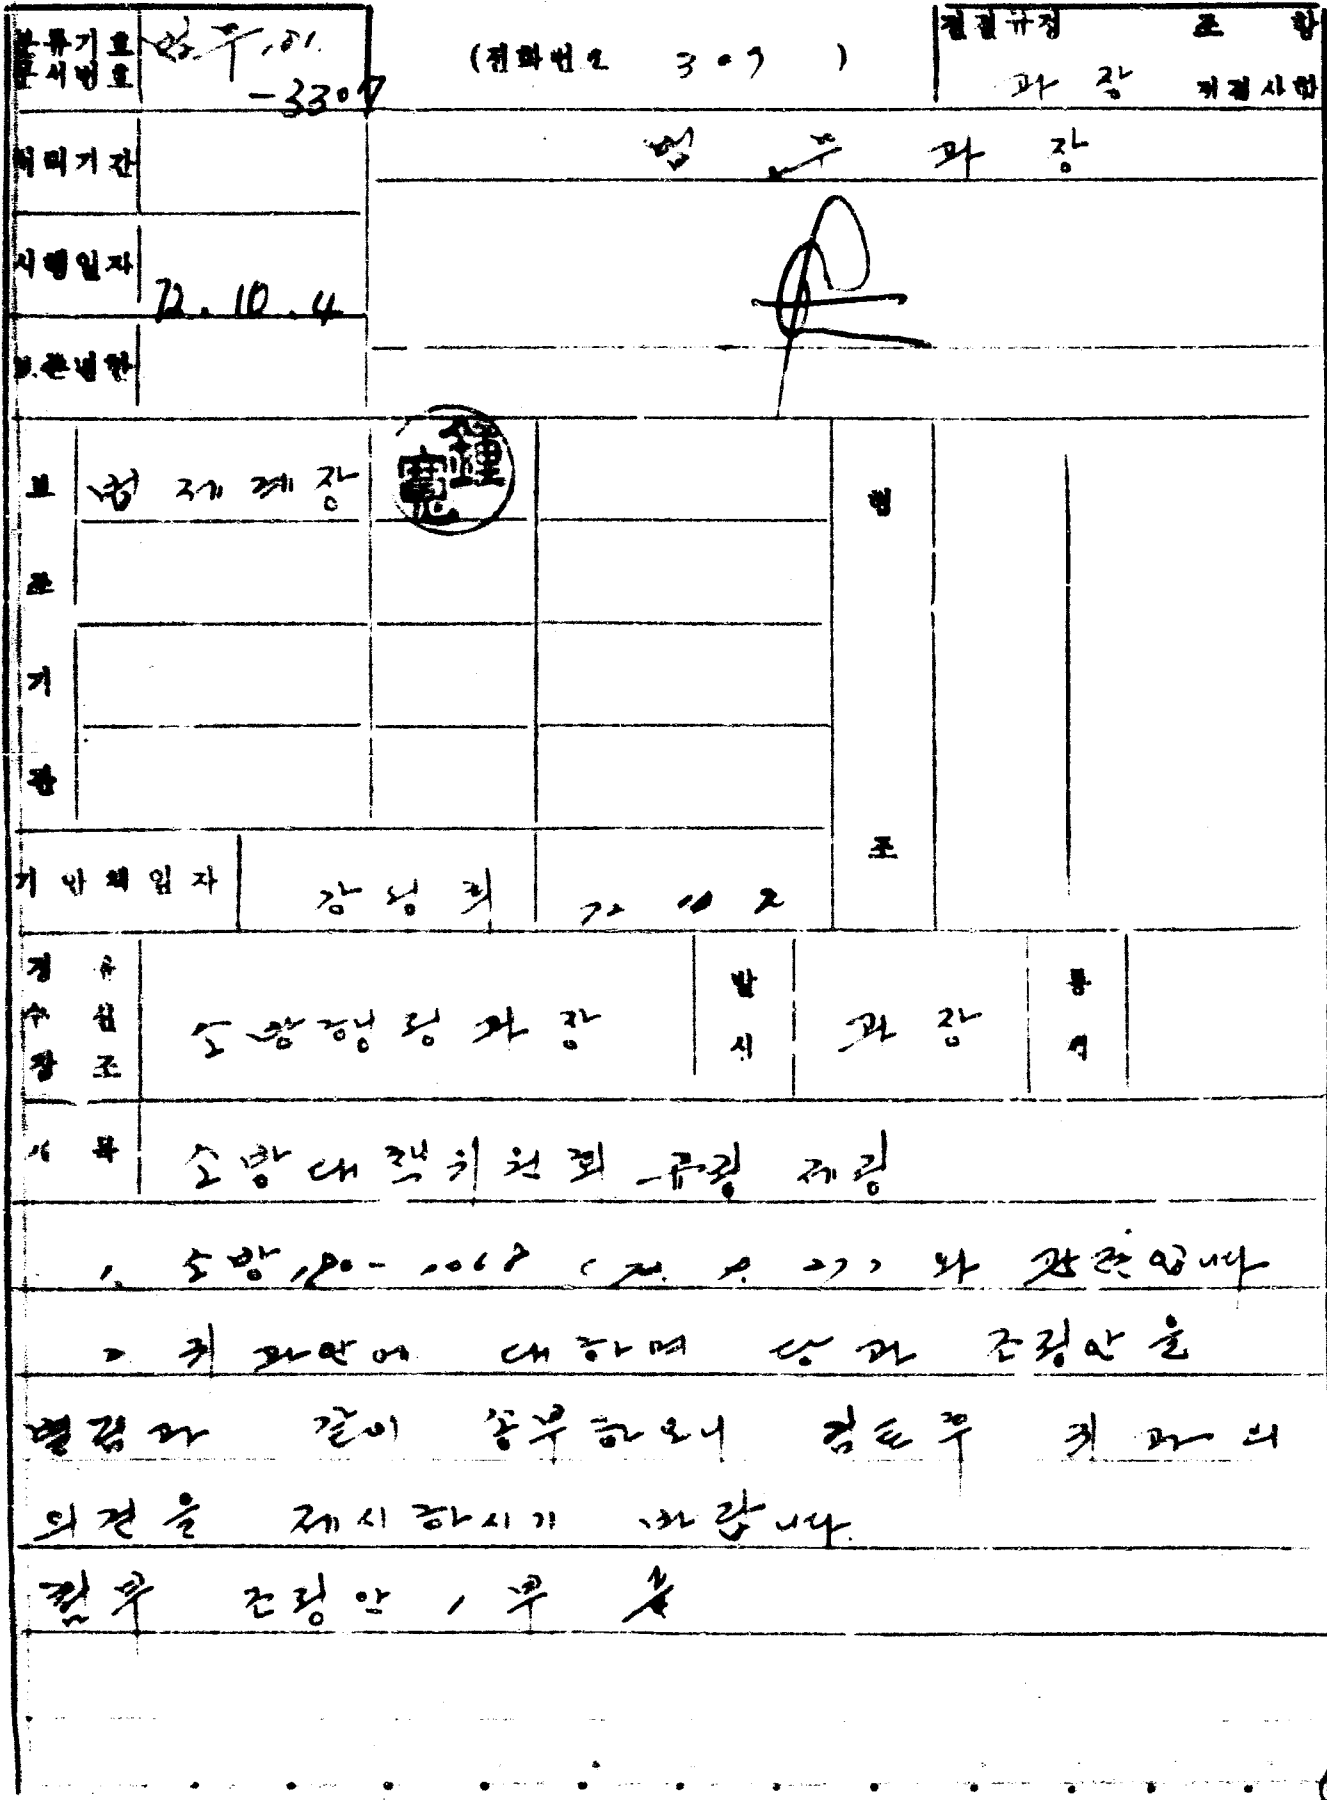 분류기호 문서번호 법무 101. -3307
(전화번호 307 )
전결규정 조 항
과 장 전결사항
처리기간
법 무 과 장
시행일자 72. 10. 4
보존년한
보조기관
법제계장
협조
기안책임자 72 10 2
경유 수신 참조
소방행정과장
발신
과장
통제
제목 소방대책위원회 규정 제정
1. 소방 와 관련입니다
2. 귀 과안에 대하며 당과 조정안을
별첨과 같이 송부하오니 검토후 귀과의
의견을 제시하시기 바랍니다.
첨부 조정안 1부 끝